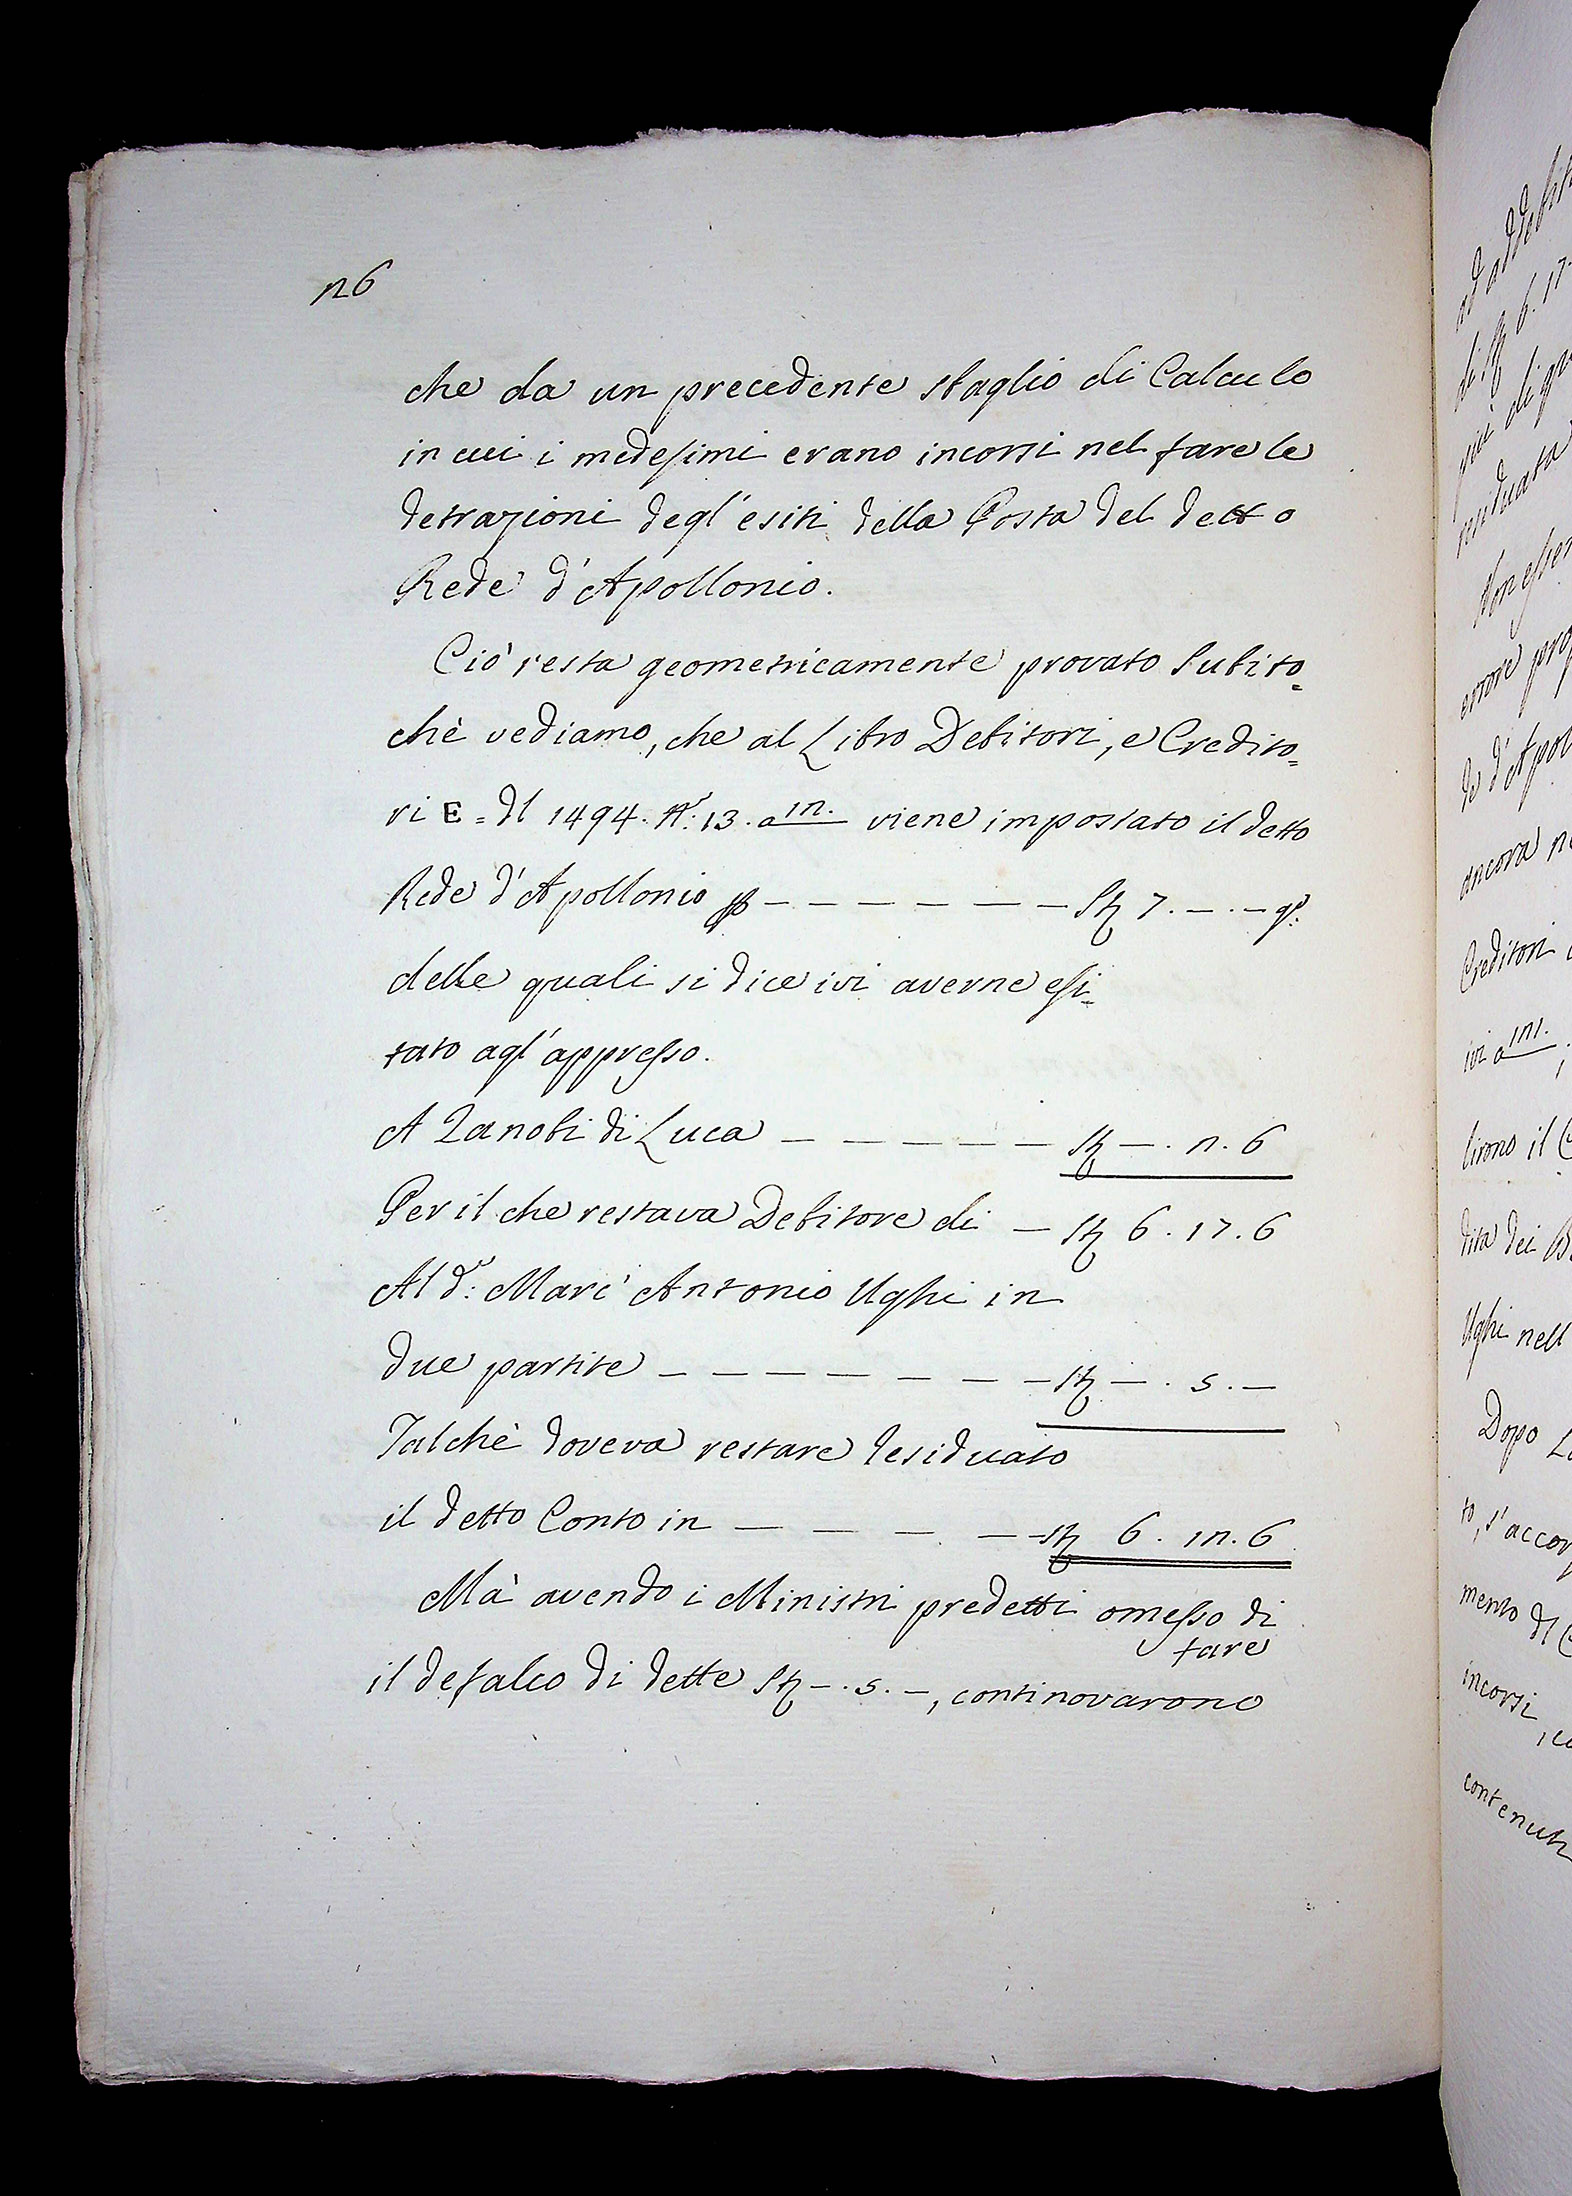 26
che da un precedente sbaglio di Calculo
in cui i medesimi erano incorsi nel fare le
detrazioni degl'esiti della Posta del detto
Rede d'Apollonio.
Ciò resta geometricamente provato subito=
chè vediamo, che al Libro Debitori, e Credito=
ri E = del 1494. N.º: 13. a 12. viene impostato il detto
Rede d'Apollonio p - - - - - - St 7. - . - q.
delle quali si dice ivi averne esi=
tato agl'appresso.
A Zanobi di Luca - - - - - St - . 2. 6
Per il che restava Debitore di - St 6. 17. 6
Al d.º: Marc'Antonio Ughi in
due partite - - - - - - - St - . 5. -
Talchè doveva restare residuato
il detto Conto in - - - - - St 6. 12. 6
Mà avendo i Ministri predetti omesso di
fare
il defalco di dette St - . 5. -, continovarono
ad addebit
di St 6. 17.
più di qu
residuata
Non esser
errore pro
de d'Apol
ancora n
Creditori
ivi a 121.
lirono il C
dita dei B
Ughi nell
Dopo
to, s'accor
mento del C
incorsi,
contenuti